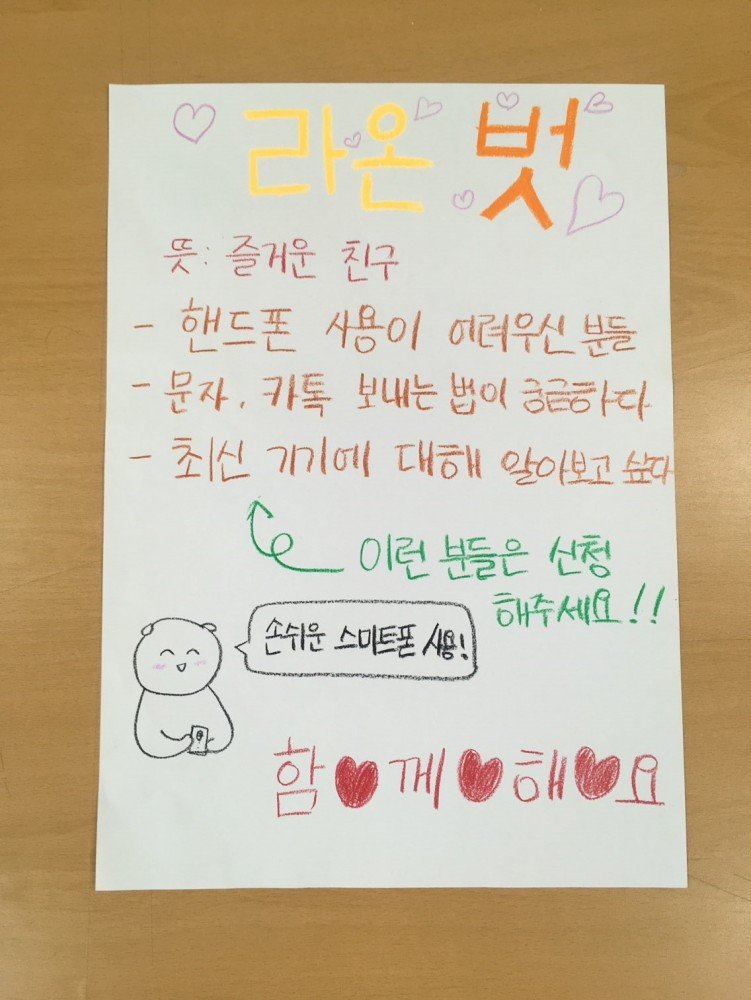 라온 벗
뜻: 즐거운 친구
- 핸드폰 사용이 어려우신 분들
- 문자, 카톡 보내는 법이 궁금하다
- 최신 기기에 대해 알아보고 싶다
이런 분들은 신청
해주세요!!
손쉬운 스마트폰 사용!
함♥께♥해♥요